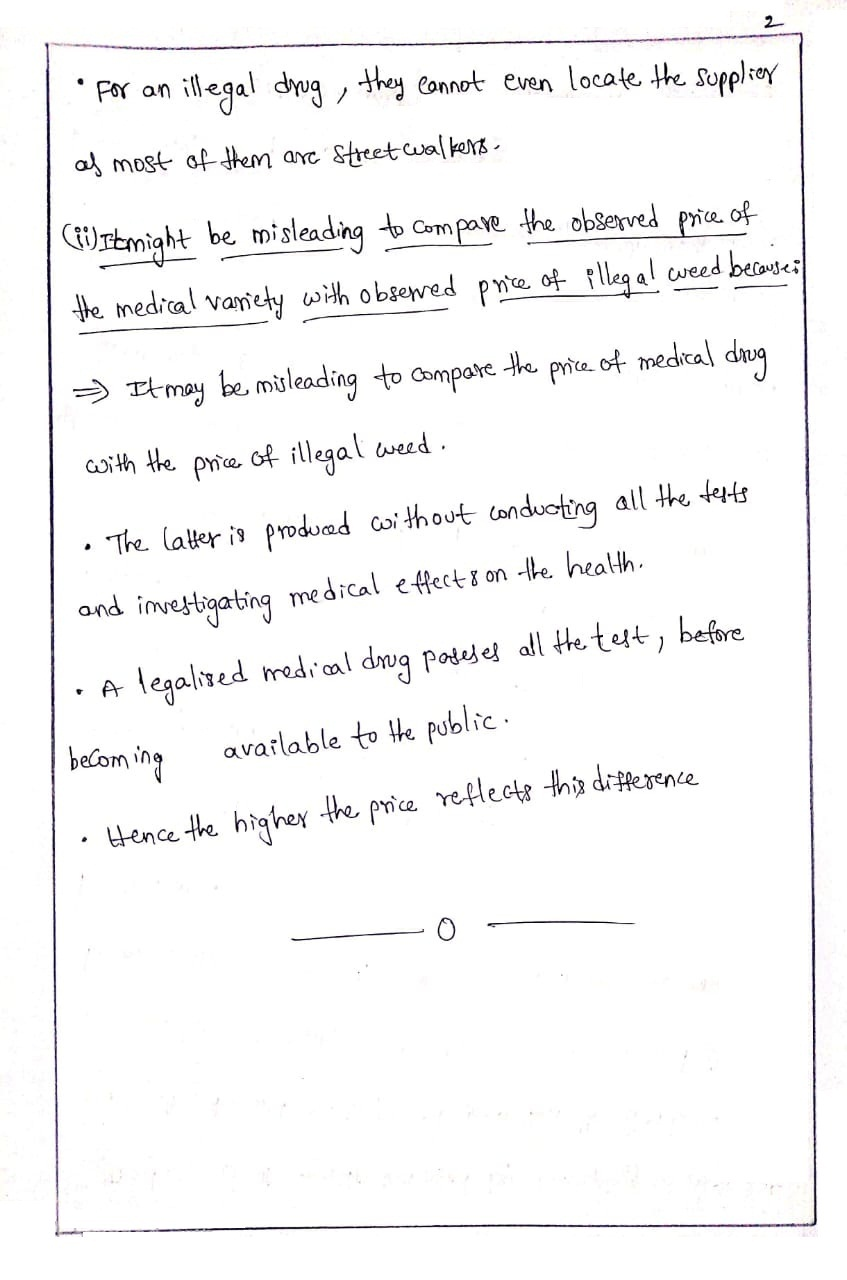 2
• For an illegal drug, they cannot even locate the supplier
as most of them are streetwalkers.
(ii) It might be misleading to compare the observed price of
the medical variety with observed price of illegal weed because:
⇒ It may be misleading to compare the price of medical drug
with the price of illegal weed.
• The latter is produced without conducting all the tests
and investigating medical effects on the health.
• A legalised medical drug poseses all the test, before
becoming available to the public.
• Hence the higher the price reflects this difference
—— 0 ——